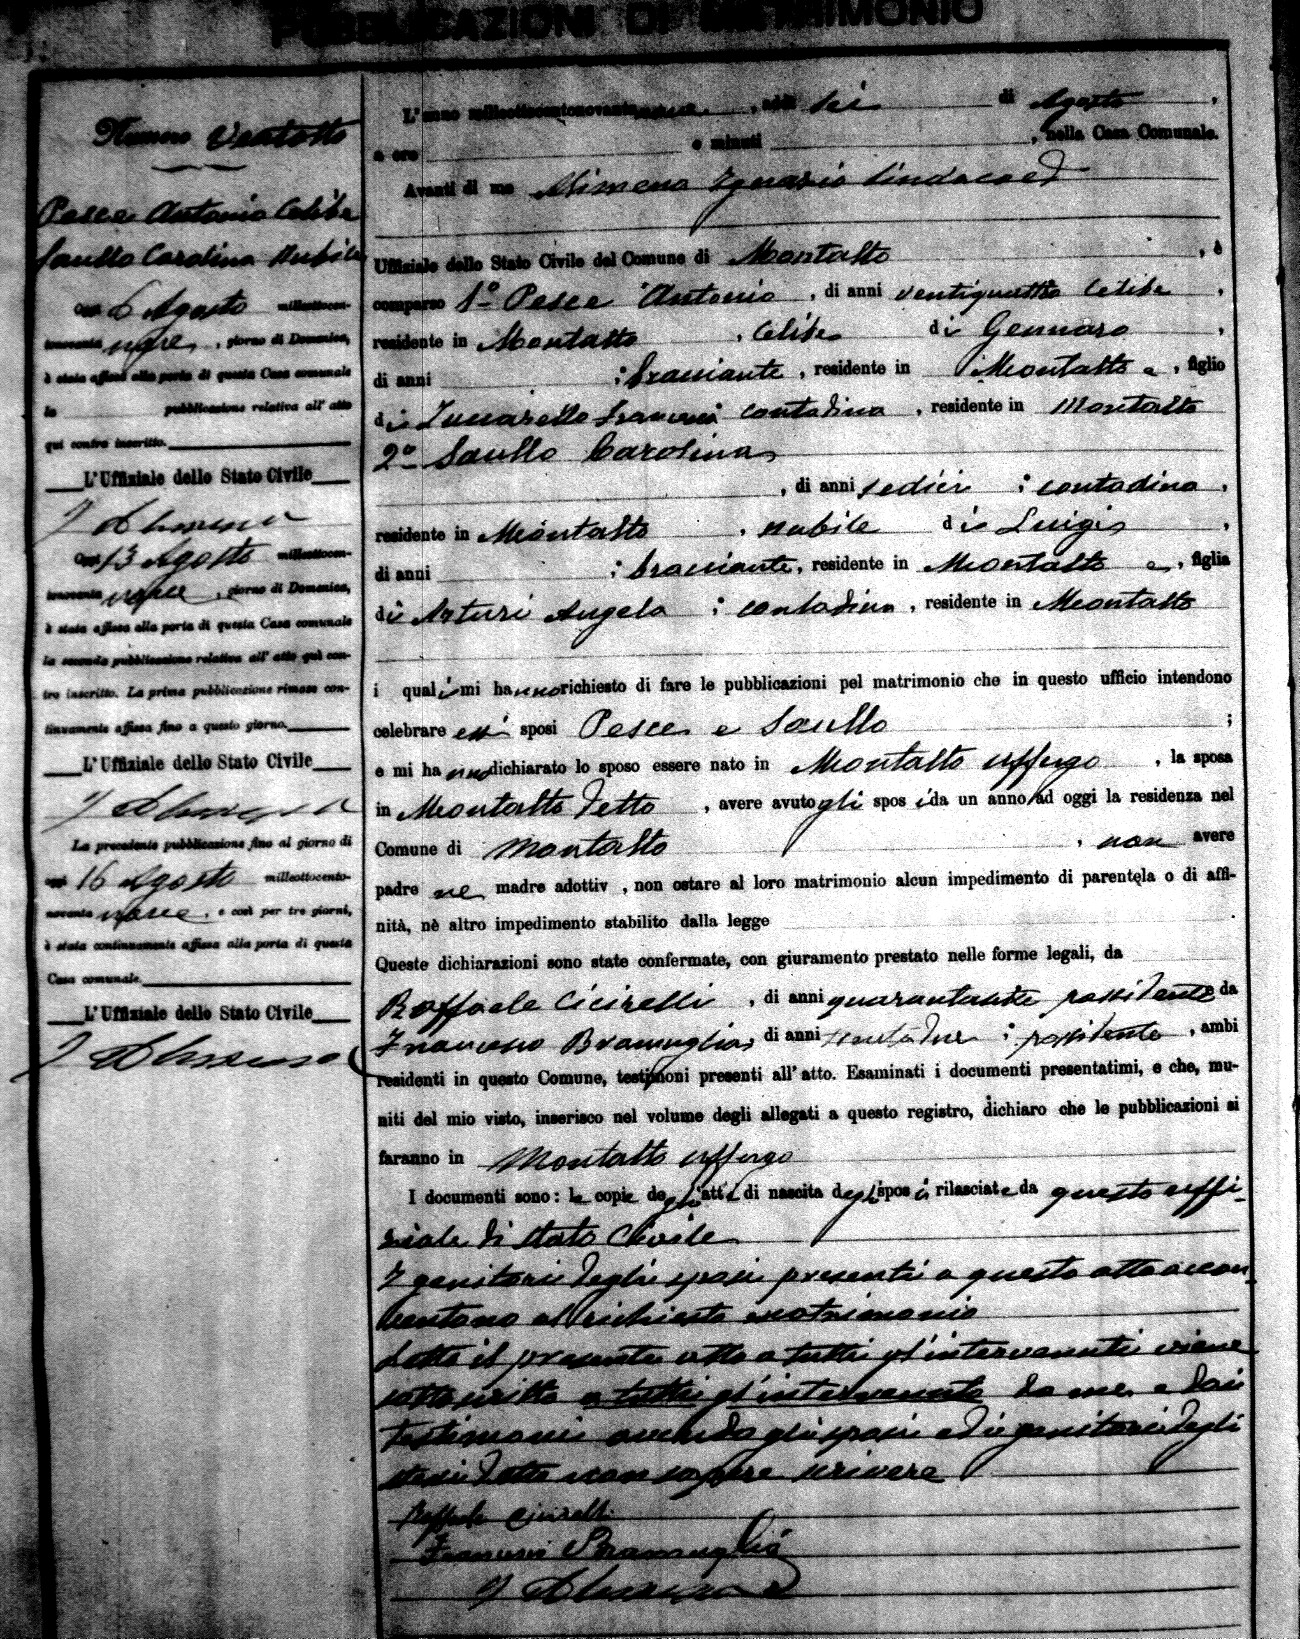 PUBBLICAZIONI DI MATRIMONIO
Numero Ventotto
Pesce Antonio Celibe
Saullo Carolina Nubile
Oggi 6 Agosto milleottocen-
tonovanta nove, giorno di Domenica,
è stata affissa alla porta di questa Casa comunale
la pubblicazione relativa all'atto
qui contro inscritto.
L'Uffiziale dello Stato Civile
I Alimena
Oggi 13 Agosto milleottocen-
tonovanta nove, giorno di Domenica,
è stata affissa alla porta di questa Casa comunale
la seconda pubblicazione relativa all'atto quì con-
tro inscritto. La prima pubblicazione rimase con-
tinuamente affissa fino a questo giorno.
L'Uffiziale dello Stato Civile
I Alimena
La precedente pubblicazione fino al giorno di
oggi 16 Agosto milleottocento-
novanta nove, e così per tre giorni,
è stata continuamente affissa alla porta di questa
Casa comunale.
L'Uffiziale dello Stato Civile
I Alimena
L'anno milleottocentonovanta nove, addì sei di Agosto,
a ore e minuti, nella Casa Comunale.
Avanti di me Alimena Ignazio Sindaco ed
Uffiziale dello Stato Civile del Comune di Montalto, è
comparso 1º Pesce Antonio, di anni ventiquattro Celibe,
residente in Montalto, Celibe di Gennaro,
di anni ; bracciante, residente in Montalto e, figlio
di Zuccarello contadina, residente in Montalto
2º Saullo Carolina
, di anni sedici ; contadina,
residente in Montalto, nubile di Luigi,
di anni ; bracciante, residente in Montalto e, figlia
di Arturi Angela ; contadina, residente in Montalto
i quali mi hanno richiesto di fare le pubblicazioni pel matrimonio che in questo ufficio intendono
celebrare essi sposi Pesce e Saullo ;
e mi hanno dichiarato lo sposo essere nato in Montalto Uffugo, la sposa
in Montalto detto, avere avuto gli sposi da un anno ad oggi la residenza nel
Comune di Montalto, non avere
padre ne madre adottiv , non ostare al loro matrimonio alcun impedimento di parentela o di affi-
nità, nè altro impedimento stabilito dalla legge
Queste dichiarazioni sono state confermate, con giuramento prestato nelle forme legali, da
Raffaele Cicirelli, di anni possidente e da
Francesco Bramuglia, di anni ; possidente, ambi
residenti in questo Comune, testimoni presenti all'atto. Esaminati i documenti presentatimi, e che, mu-
niti del mio visto, inserisco nel volume degli allegati a questo registro, dichiaro che le pubblicazioni si
faranno in Montalto Uffugo
I documenti sono: le copie degli atti di nascita degli sposi rilasciate da questo uffi-
ziale di stato Civile
I genitori degli sposi presenti a questo atto accon-
sentono al richiesto matrimonio
Letto il presente atto a tutti gl'intervenuti viene
sottoscritto a tutti gl'intervenuti da me e dai
testimoni avendo gli sposi ed i genitori degli
stessi detto non sapere scrivere
Raffaele Cicirelli
Francesco Bramuglia
I Alimena